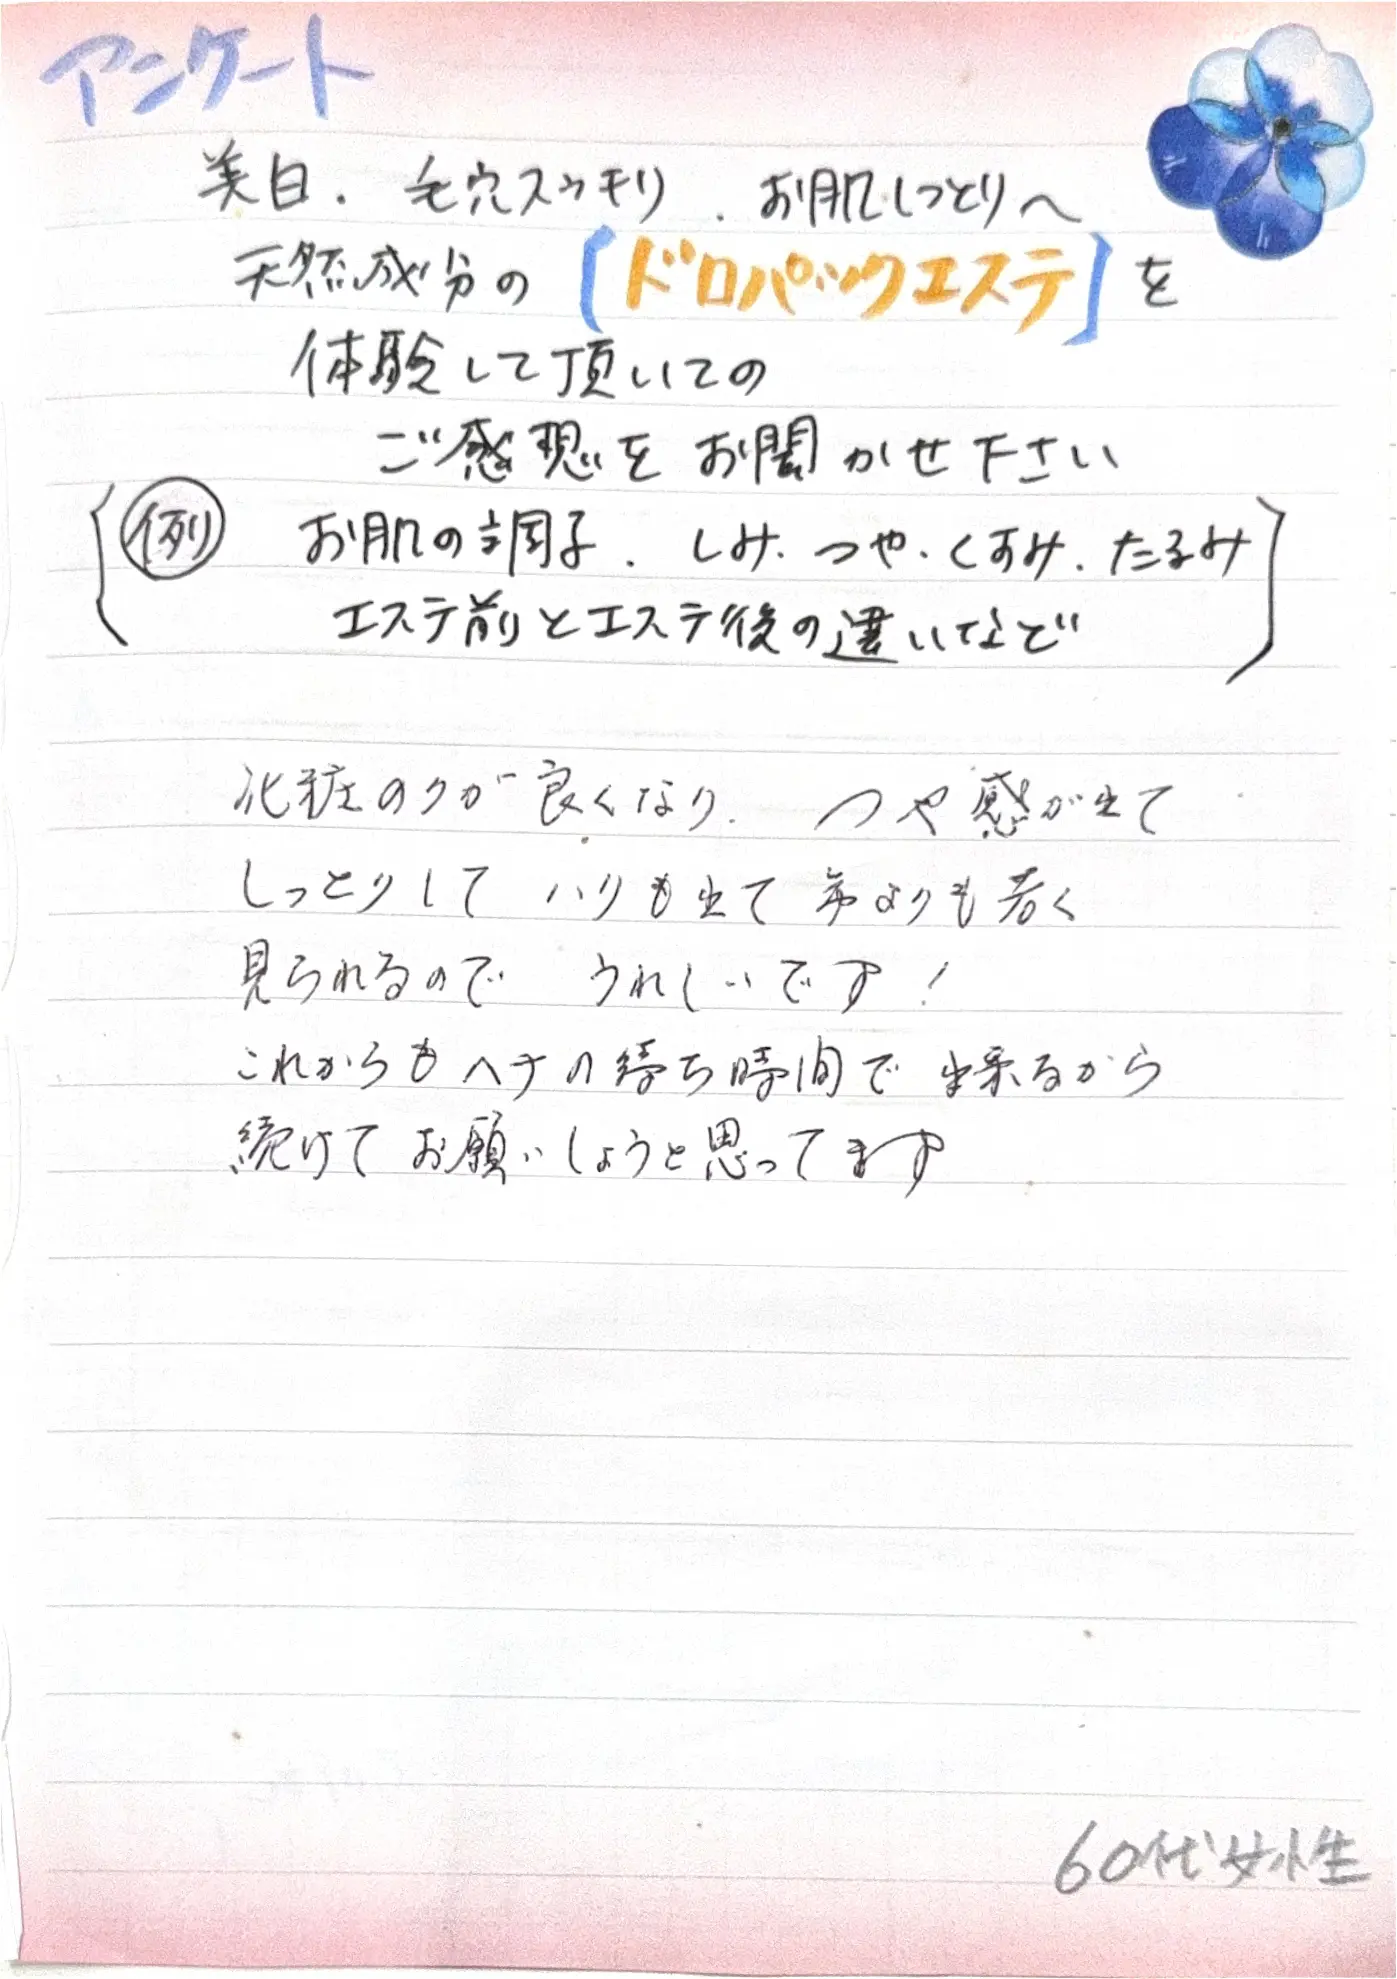 アンケート
美白. 毛穴スッキリ. お肌しっとりへ
天然成分の[ドロパックエステ]を
体験して頂いての
ご感想をお聞かせ下さい
例 お肌の調子. しみ. つや. くすみ. たるみ
エステ前とエステ後の違いなど
化粧のりが良くなり. つや感が出て
しっとりして ハリも出て 年よりも若く
見られるので うれしいです!
これからもヘナの待ち時間で出来るから
続けてお願いしようと思ってます
60代女性